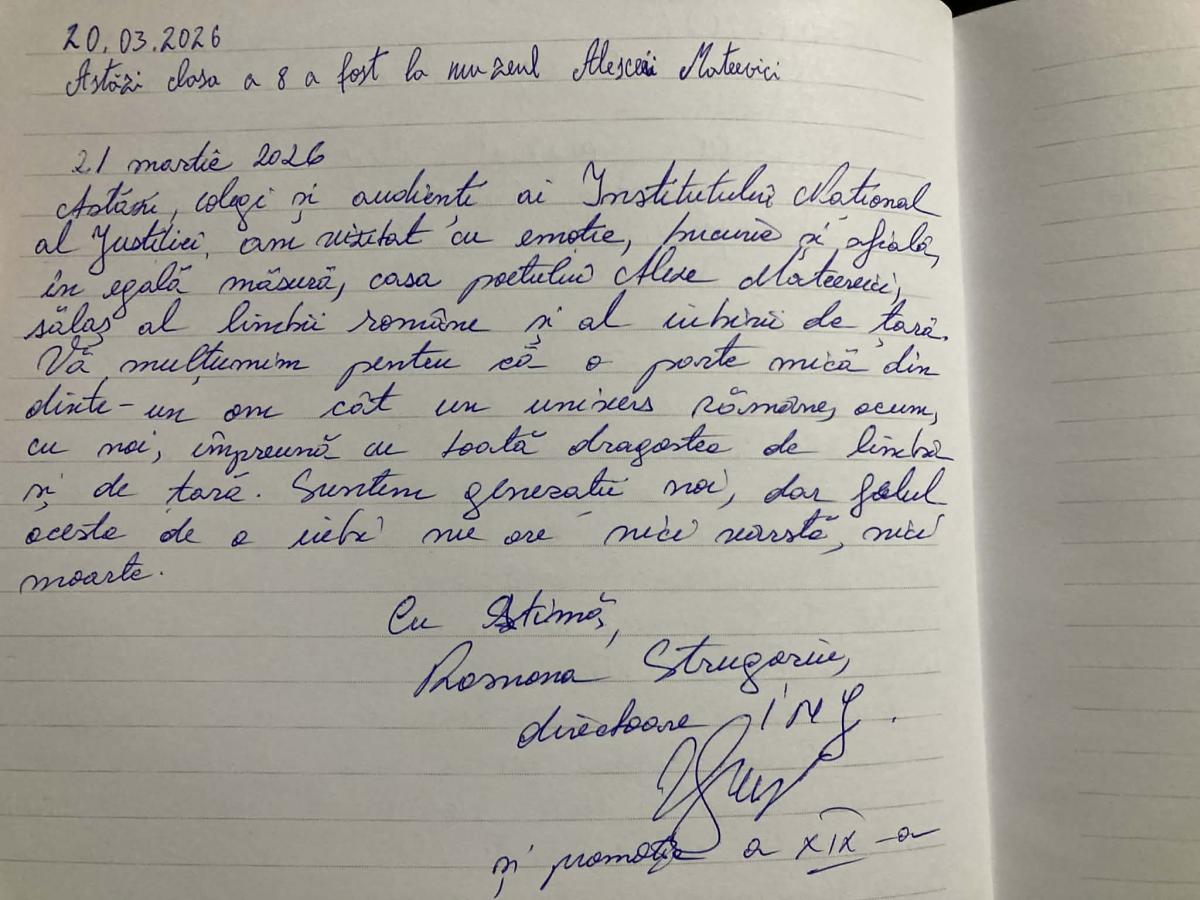 20.03.2026
Astăzi clasa a 8 a fost la muzeul Alexei Mateevici
21 martie 2026
Astăzi, colegi și audienți ai Institutului Național
al Justiției, am vizitat cu emoție, bucurie și sfială,
în egală măsură, casa poetului Alexe Mateevici,
sălaș al limbii române și al iubirii de țară.
Vă mulțumim pentru că o parte mică din
dintr-un om cât un univers rămâne, acum,
cu noi, împreună cu toată dragostea de limbă
și de țară. Suntem generații noi, dar felul
acesta de a iubi nu are nici vârstă, nici
moarte.
Cu stimă,
Romana Strugariu,
directoare INJ.
și promoția a XIX-a